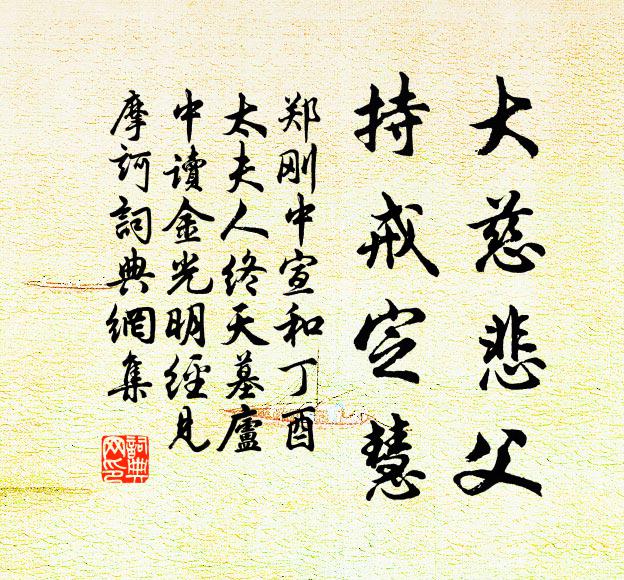 大慈悲父
持戒定慧
郑刚中宣和丁酉
太夫人终天墓廬
中讀金光明經見
摩訶詞典網集
詞典
网印